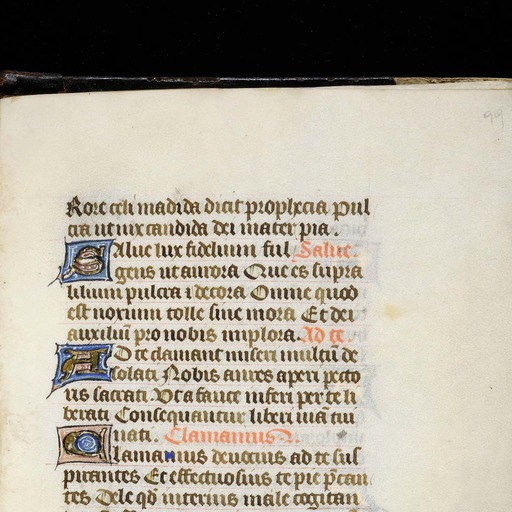 Rore celi madida dicit prophecia pul
cra ut nix candida dei mater pia.
Salue lux fidelium ful Salue.
gens ut aurora Que es supra
lilium pulcra ⁊ decora Omne quod
est noxium tolle sine mora Et dei
auxiliū pro nobis implora. Ad te.
AD te clamant miseri multū de
solati Nobis aures aperi pecto
ris sacrati. Vt a fauce inferi per te li
berati Consequantur liberi uiam tui
nati. Clamamus.
Clamamus deuecius ad te sus
pirantes Et effectuosius te pie p̄can
tes Dele qd̄ interius male cogitan